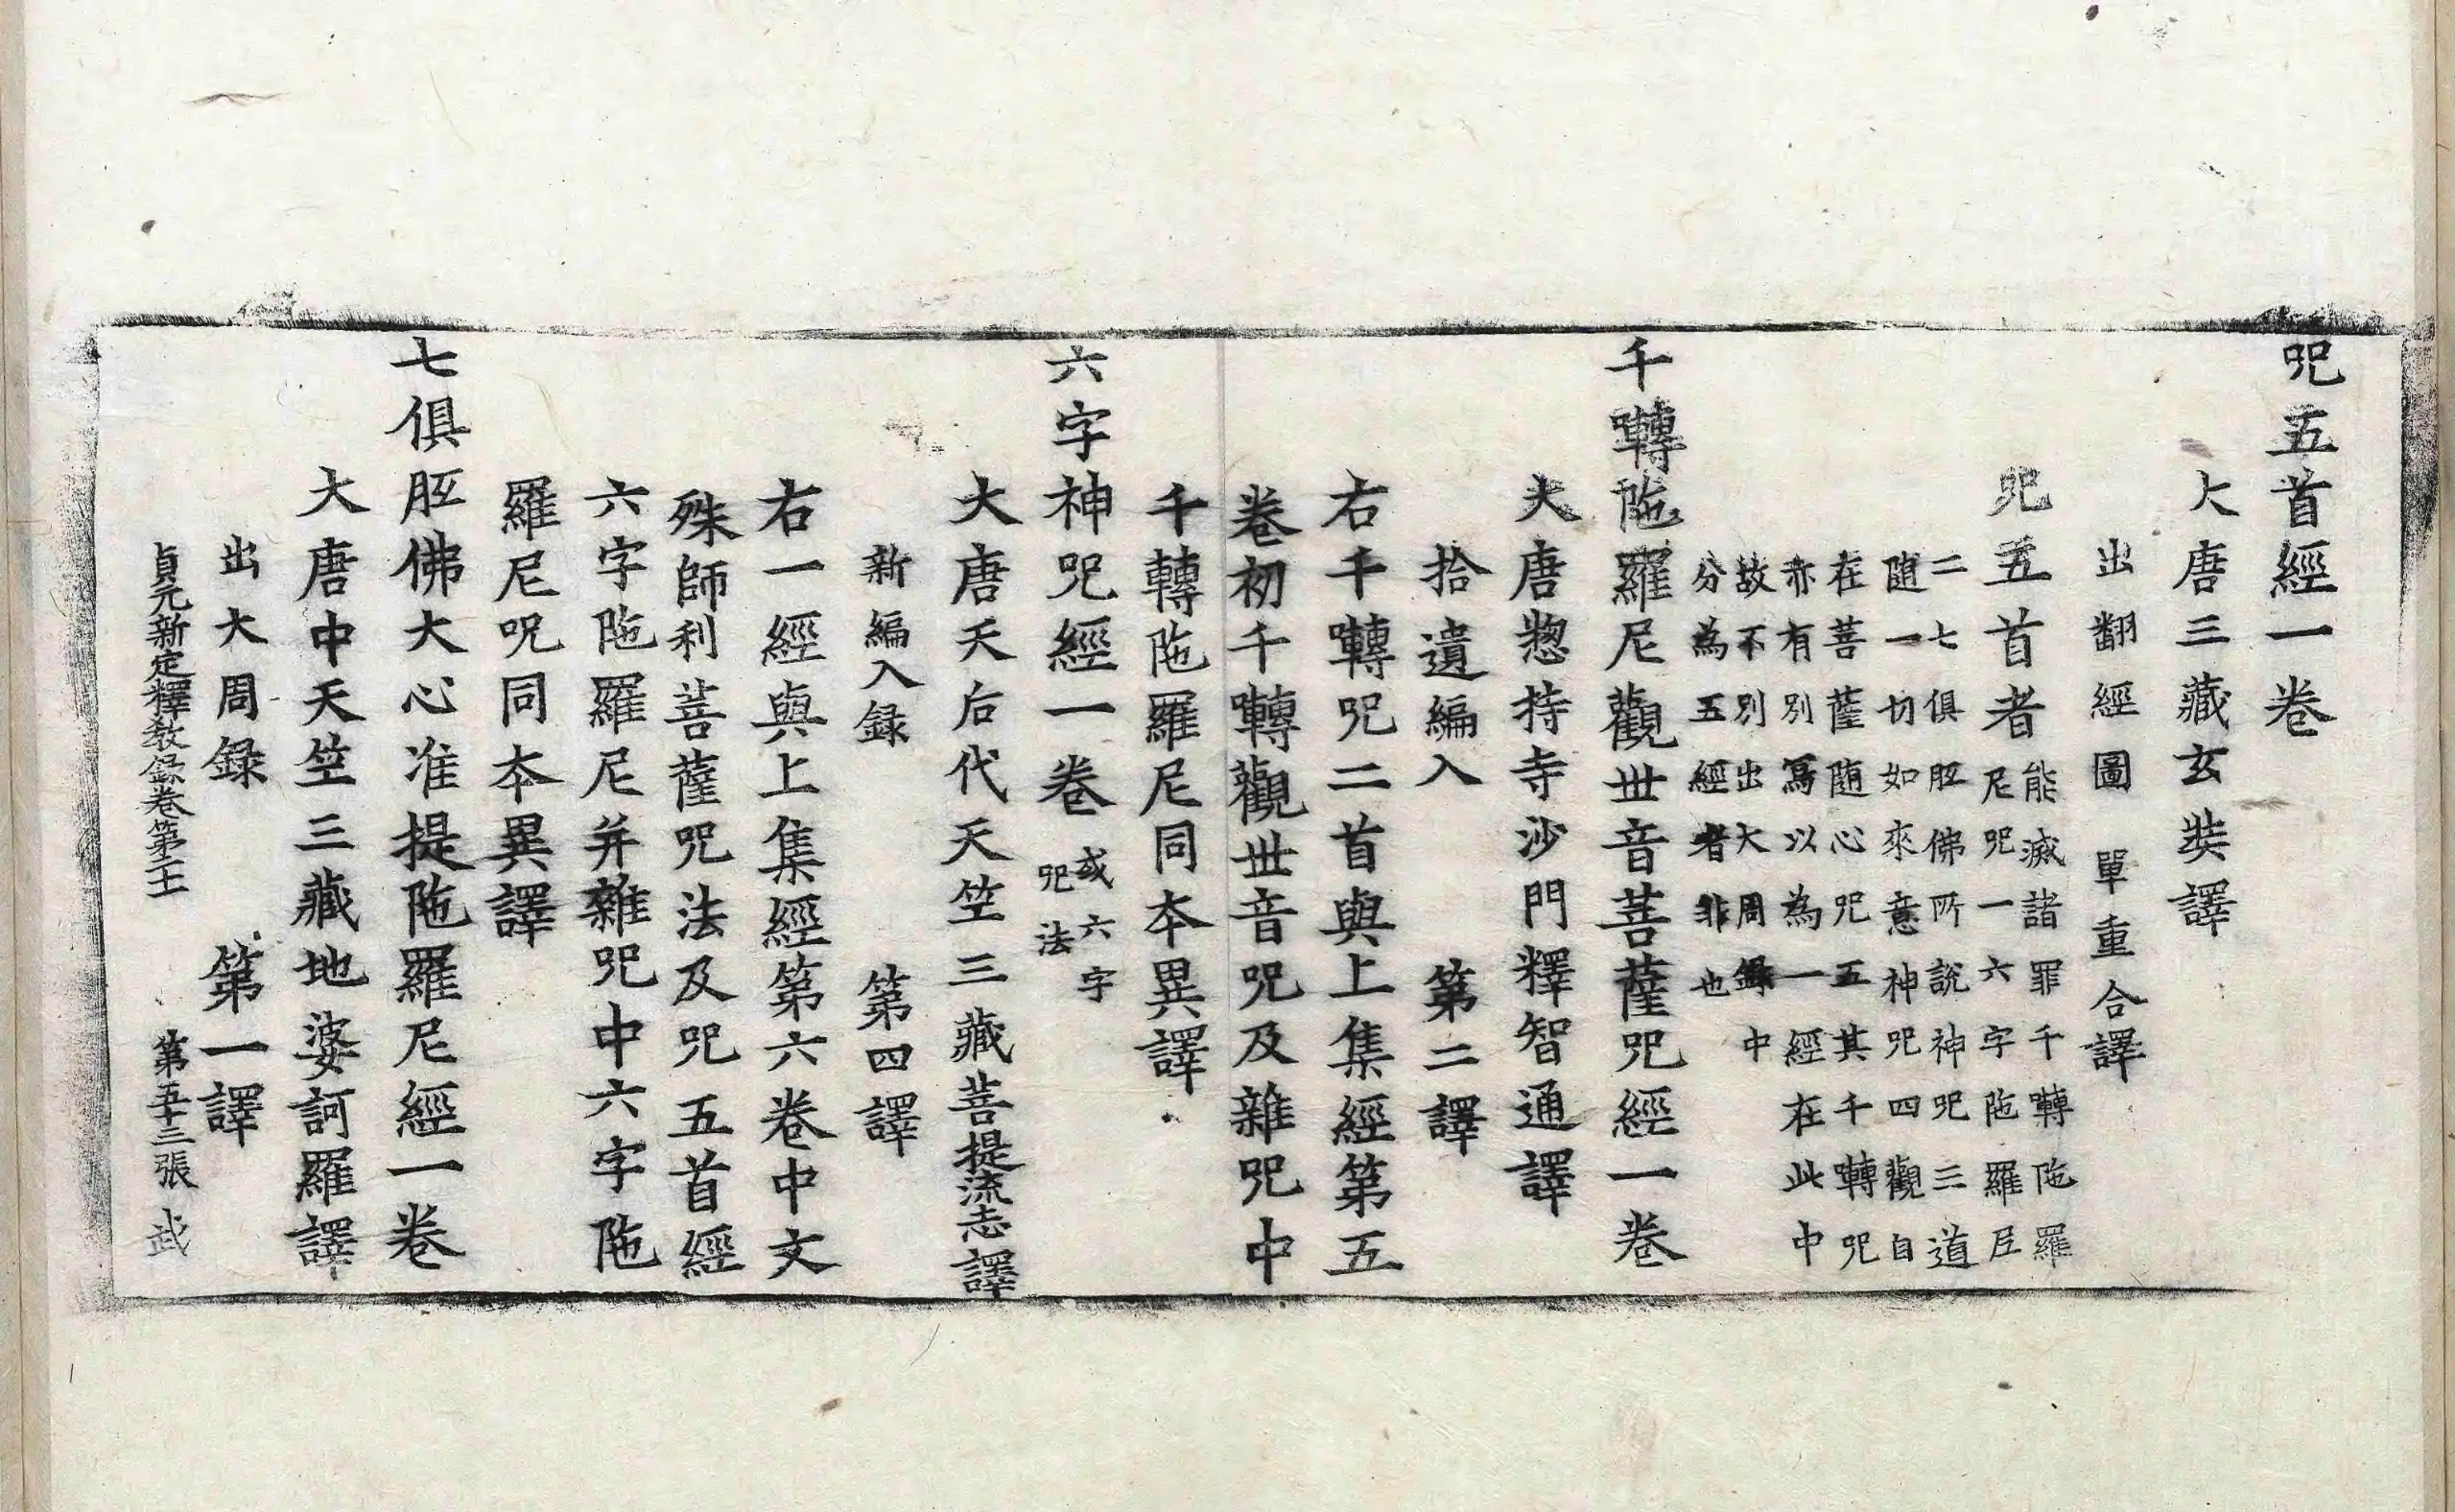 呪五首經一卷
大唐三藏玄奘譯
出翻經圖 單重合譯
呪五首者
能滅諸罪千囀陁羅
尼呪一六字陁羅尼
二七俱胝佛所說神呪三道
随一切如來意神呪四觀自
在菩薩随心呪五其千囀呪
亦有別寫以為一經在此中
故不別出大周錄中
分為五經者非也
千囀陁羅尼觀世音菩薩呪經一卷
大唐惣持寺沙門釋智通譯
拾遺編入 第二譯
右千囀呪二首與上集經第五
卷初千囀觀世音呪及雜呪中
千轉陁羅尼同本異譯
六字神呪經一卷
或六字
呪法
大唐天后代天竺三藏菩提流志譯
新編入録 第四譯
右一經與上集經第六卷中文
殊師利菩薩呪法及呪五首經
六字陁羅尼并雜呪中六字陁
羅尼呪同本異譯
七俱胝佛大心准提陁羅尼經一卷
大唐中天竺三藏地婆訶羅譯
出大周録 第一譯
貞元新定釋教錄卷第二十 第五十三張 武